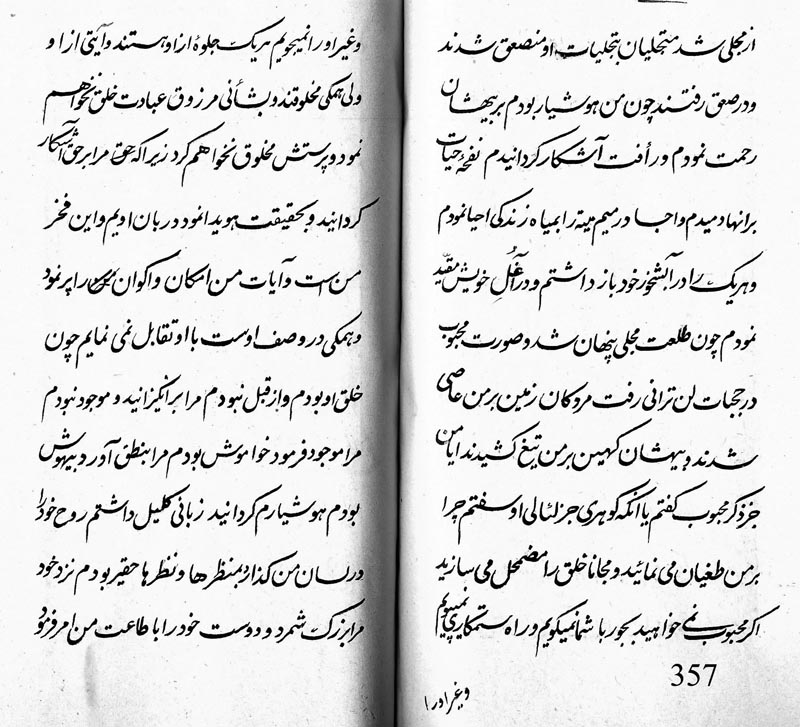 از مجلی شد متجلیان بتجلیات او منصعق شدند
و در صعق رفتند چون من هوشیار بودم بر بیهشان
رحمت نمودم و رأفت آشکار کردانیدم نفحۀ حیات
برانها دمیدم و اجساد رمیم میته را بمیاه زندکی احیا نمودم
و هریک را در آبشخور خود باز داشتم و در آغل خویش مقید
نمودم چون طلعت مجلی پنهان شد و صورت محبوب
در حجبات لن ترانی رفت مردکان زمین بر من عاصی
شدند و بیهشان کهین بر من تیغ کشیدند ایا من
جز ذکر محبوب کفتم یا انکه کوهری جز لئالی او سفتم چرا
بر من طغیان می نمائید و مجانا خلق را مضمحل می سازید
اکر محبوب نمی خواهید بجور با شما نمیکویم و راه ستمکاری نمیپویم
357
و غیر او را
و غیر او را نمیجویم هریک جلوۀ از او هستند و آیتی از او
ولی همکی مخلوقند و بشأنی مرزوق عبادت خلق نخواهم
نمود و پرستش مخلوق نخواهم کرد زیرا که حق مرا بر حق آشکار
کردانید و بحقیقت هویدا نمود دربان اویم و این فخر
من است و آیات من امکان و اکوان را پر نمود
و همکی در وصف اوست با او تقابل نمی نمایم چون
خلق او بودم و از قبل نبودم مرا برانکیزانید و موجود نبودم
مرا موجود فرمود خاموش بودم مرا بنطق آورد بیهوش
بودم هوشیارم کردانید زبانی کلیل داشتم روح خود را
در لسان من کذارد بمنظرها و نظرها حقیر بودم نزد خود
مرا بزرک شمرد و دوست خود را با طاعت من امر فرمود